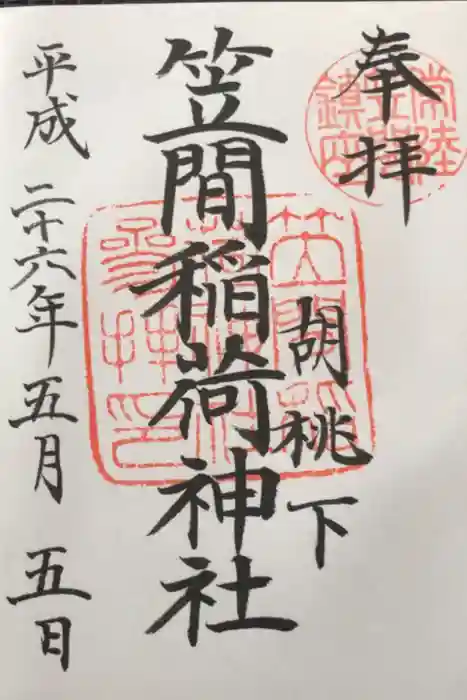 奉拝
胡桃下
笠間稲荷神社
平成二十六年五月五日